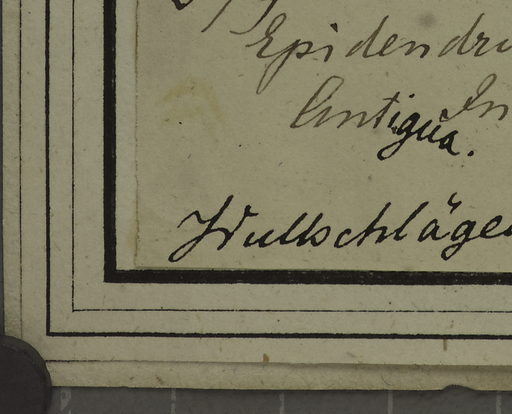 Epidendru
In
Antigua.
Wullschläge